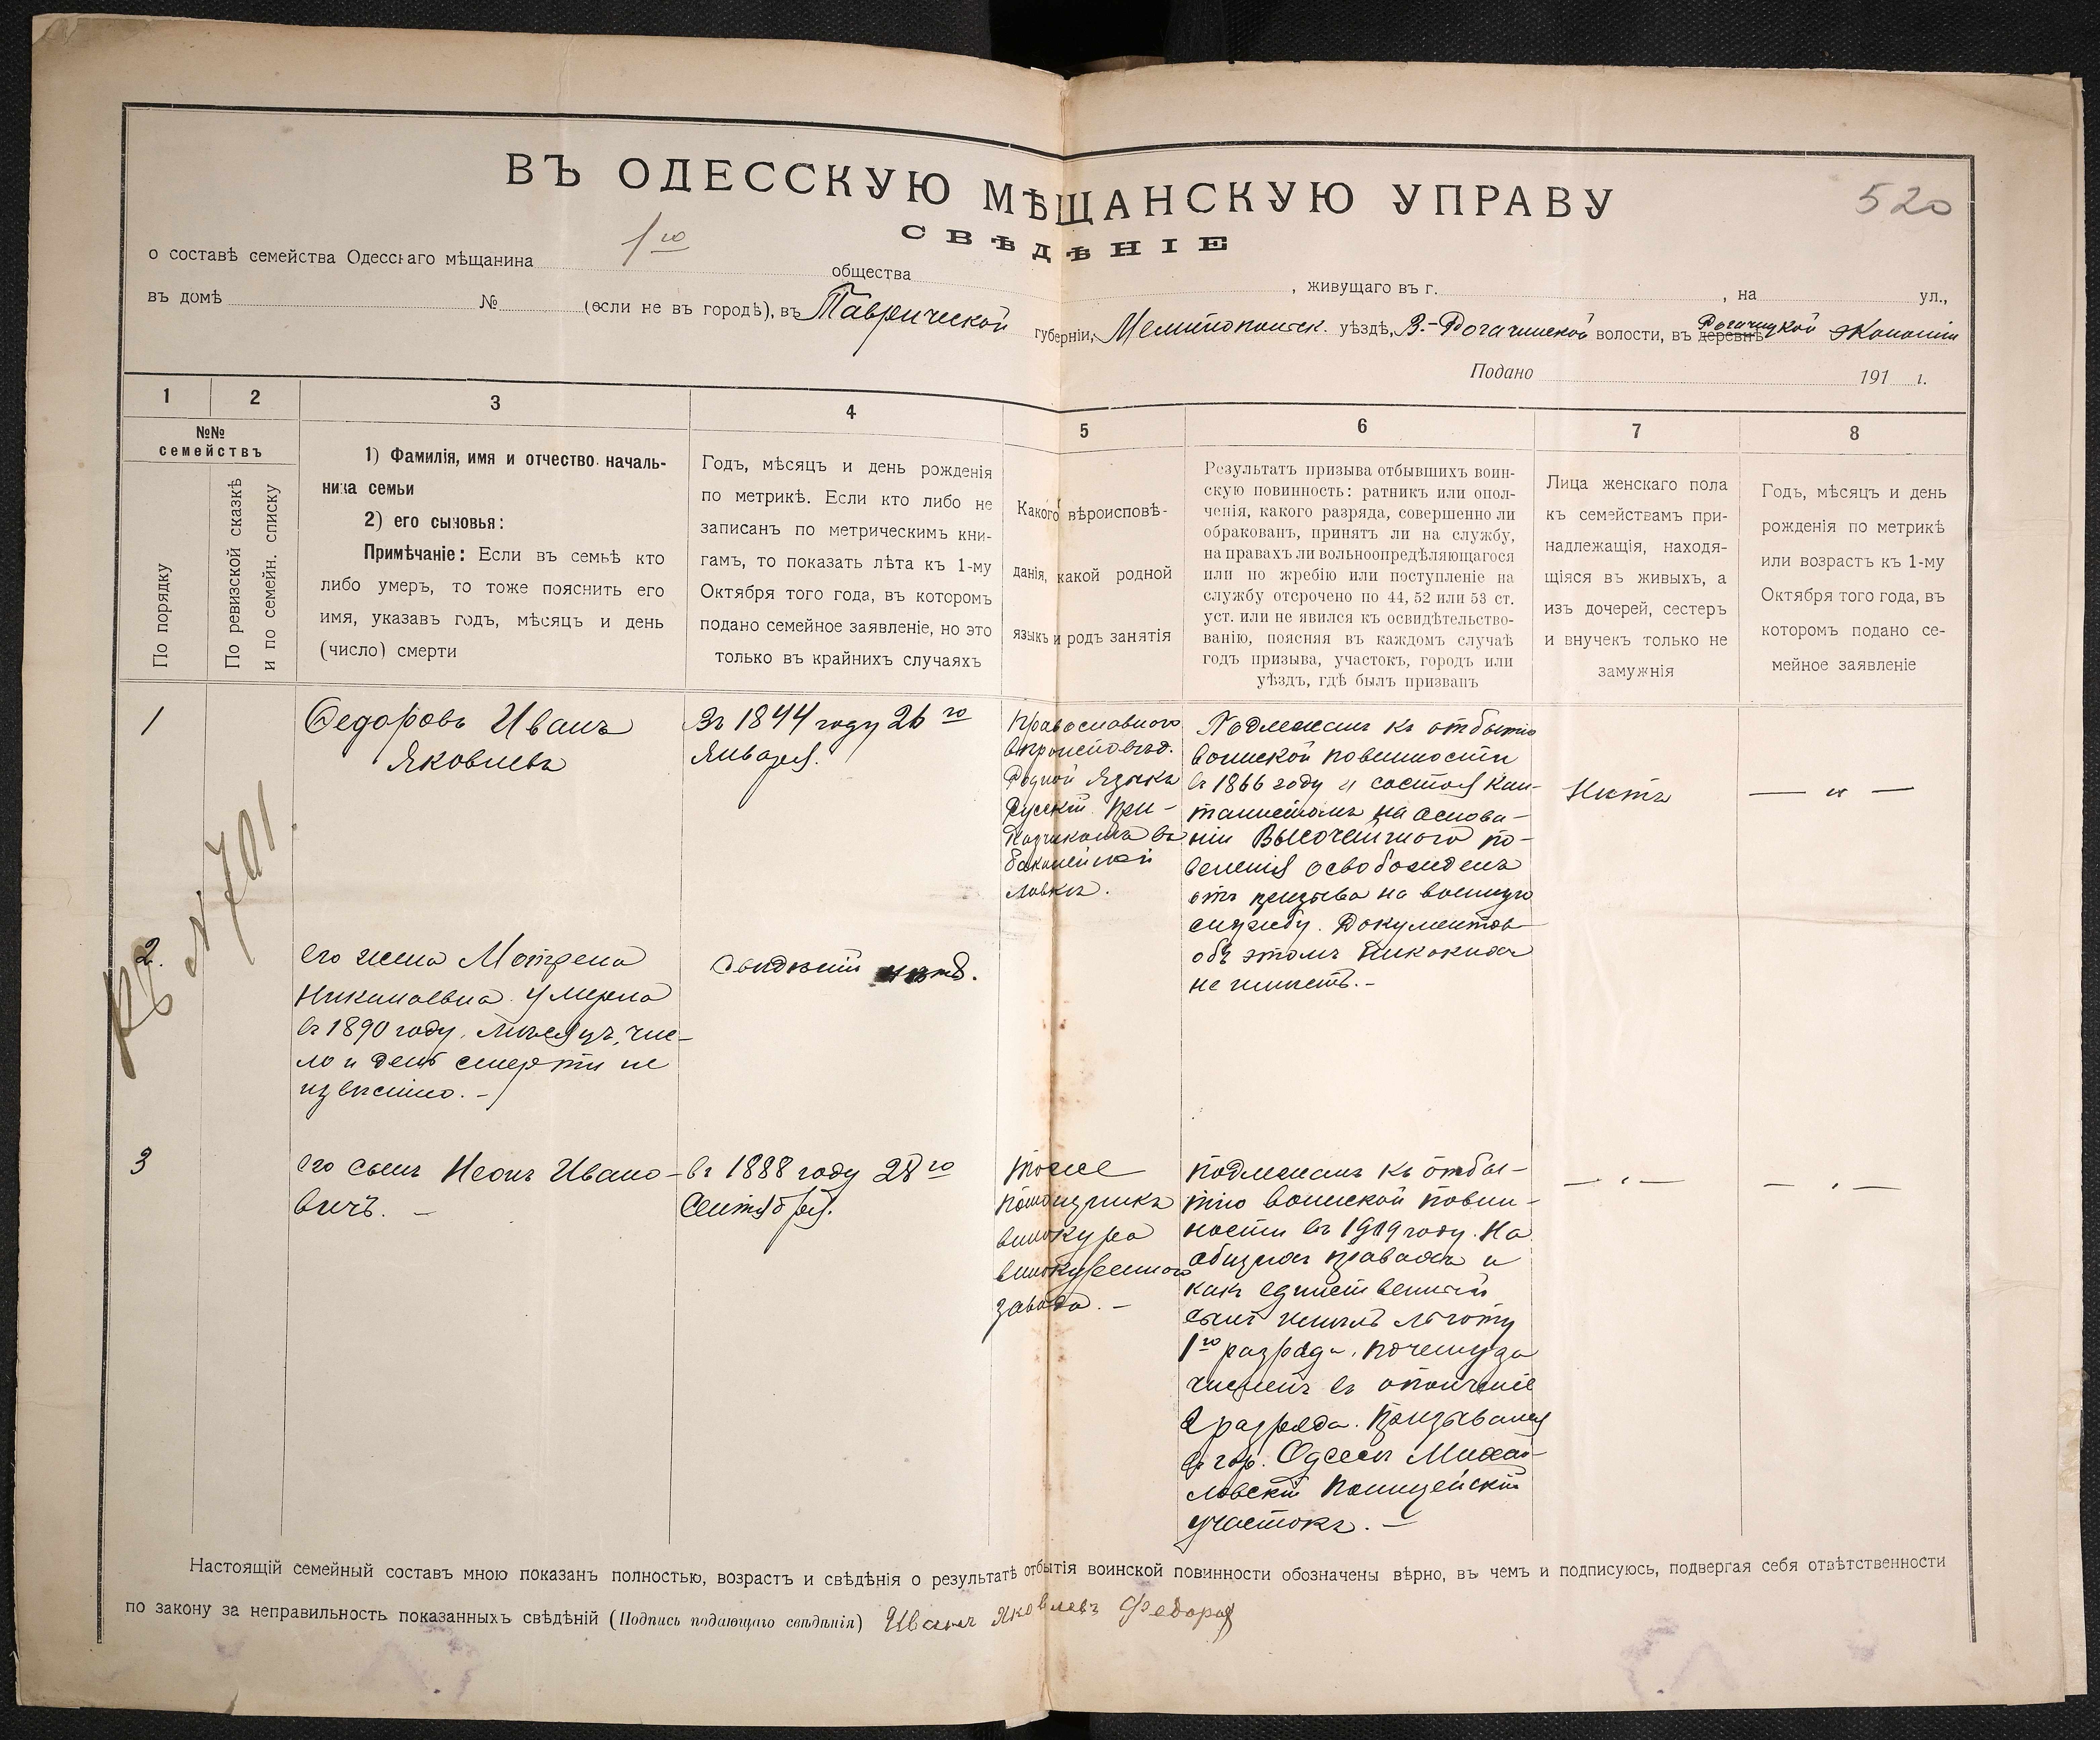 ВЪ ОДЕССКУЮ МѢЩАНСКУЮ УПРАВУ
520
СВѢДѢНІЕ
о составѣ семейства Одесскаго мѣщанина 1го общества , живущаго въ г. , на ул.,
въ домѣ № (если не въ городѣ), въ Таврической губерніи, Мелитопольск. уѣздѣ, В.-Рогачинской волости, въ деревнѣ Рогачицкой экономіи
Подано 191 г.
1
2
3
4
5
6
7
8
№№
семействъ
По порядку
По ревизской сказкѣ
и по семейн. списку
1) Фамилія, имя и отчество началь-
ника семьи
2) его сыновья:
Примѣчаніе: Если въ семьѣ кто
либо умеръ, то тоже пояснить его
имя, указавъ годъ, мѣсяцъ и день
(число) смерти
Годъ, мѣсяцъ и день рожденія
по метрикѣ. Если кто либо не
записанъ по метрическимъ кни-
гамъ, то показать лѣта къ 1-му
Октября того года, въ которомъ
подано семейное заявленіе, но это
только въ крайнихъ случаяхъ
Какого вѣроисповѣ-
данія, какой родной
языкъ и родъ занятія
Результатъ призыва отбывшихъ воин-
скую повинность: ратникъ или опол-
ченія, какого разряда, совершенно ли
обракованъ, принятъ ли на службу,
на правахъ ли вольноопредѣляющагося
или по жребію или поступленіе на
службу отсрочено по 44, 52 или 53 ст.
уст. или не явился къ освидѣтельство-
ванію, поясняя въ каждомъ случаѣ
годъ призыва, участокъ, городъ или
уѣздъ, гдѣ былъ призванъ
Лица женскаго пола
къ семействамъ при-
надлежащія, находя-
щіяся въ живыхъ, а
изъ дочерей, сестеръ
и внучекъ только не
замужнія
Годъ, мѣсяцъ и день
рожденія по метрикѣ
или возрастъ къ 1-му
Октября того года, въ
которомъ подано се-
мейное заявленіе
1
Федоровъ Иванъ
Яковлевъ
Въ 1844 году 26го
Января.
Православного
вѣроисповѣд.
Родной языкъ
Русскій При-
кащикомъ въ
бакалейной
лавкѣ.
Подлежалъ къ отбытію
воинской повинности
въ 1866 году и состоя кан-
тонистомъ на основа-
ніи Высочайшаго по-
веленія освобожденъ
отъ призыва на военную
службу. Документовъ
объ этомъ никакихъ
не имѣетъ. -
Нѣтъ
— „ —
№ 701
2.
его жена Матрена
Николаевна умерла
въ 1890 году. Мѣсяцъ, чис-
ло и день смерти не
извѣстно. -
Свѣдѣній нѣтъ.
3
его сынъ Леонъ Ивано-
вичъ. -
въ 1888 году 28го
Сентября.
тоже
помощникъ
винокура
винокуренного
завода. -
подлежалъ къ отбы-
тію воинской повин-
ности въ 1909 году. На
общихъ правахъ и
какъ единственный
сынъ имѣлъ льготу
1го разряда, почему за
численъ въ ополченіе
2 разряда. Призывался
въ гор. Одессѣ Михай-
ловскій Полицейскій
участокъ. -
— „ —
— „ —
Настоящій семейный составъ мною показанъ полностью, возрастъ и свѣдѣнія о результатѣ отбытія воинской повинности обозначены вѣрно, въ чемъ и подписуюсь, подвергая себя отвѣтственности
по закону за неправильность показанныхъ свѣдѣній (Подпись подающаго свѣдѣнія) Иванъ Яковлевъ Федоровъ